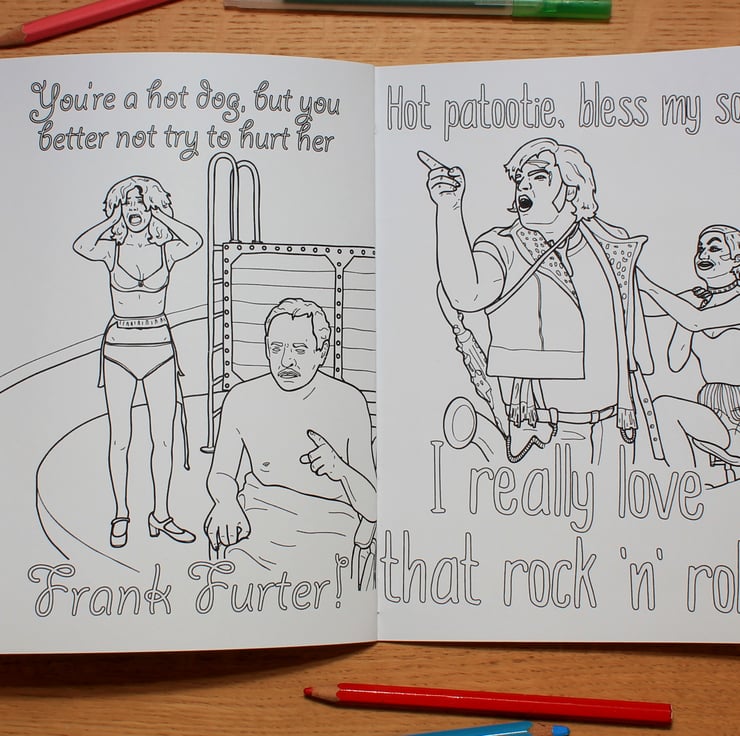 You're a hot dog, but you
better not try to hurt her
Frank Furter!
Hot patootie, bless my so
I really love
that rock 'n' rol